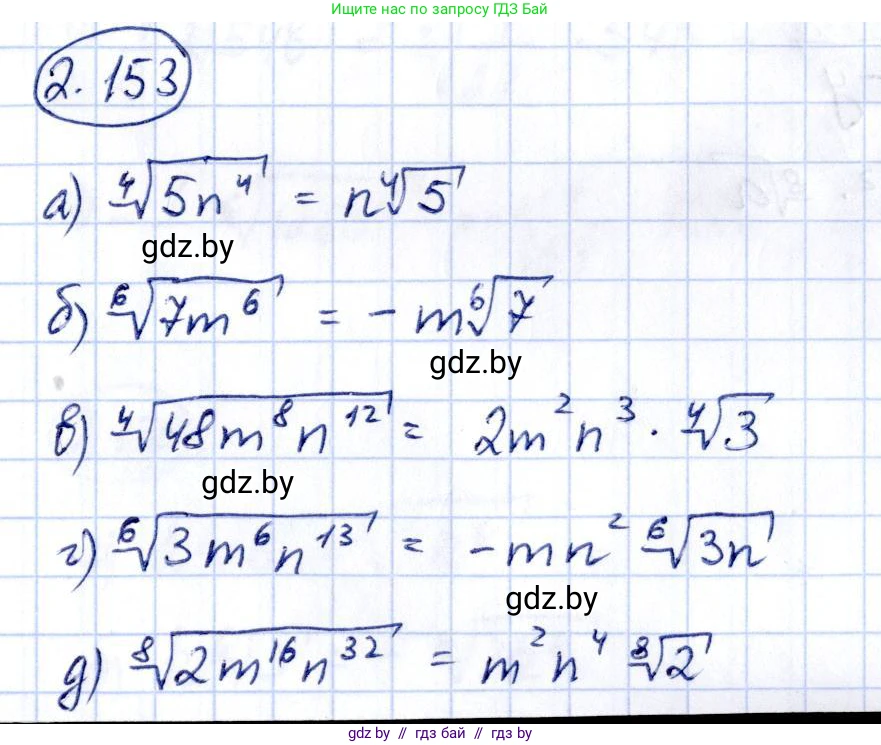 Ищите нас по запросу ГДЗ Бай
2.153
а) ⁴√(5n⁴) = n⁴√5
gdz.by
б) ⁶√(7m⁶) = - m⁶√7
gdz.by
в) ⁴√(48m⁸n¹²) = 2m²n³ · ⁴√3
gdz.by
г) ⁶√(3m⁶n¹³) = -mn² ⁶√(3n)
gdz.by
д) ⁸√(2m¹⁶n³²) = m²n⁴ ⁸√2
gdz by // гдз бай // gdz by